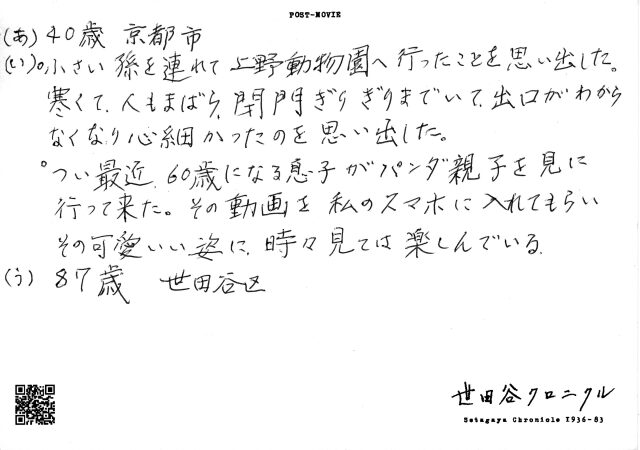 POST-MOVIE
(あ) 40歳 京都市
(い)。小さい孫を連れて上野動物園へ行ったことを思い出した。
寒くて、人もまばら、閉門ぎりぎりまでいて、出口がわから
なくなり心細かったのを思い出した。
。つい最近、60歳になる息子がパンダ親子を見に
行って来た。その動画を私のスマホに入れてもらい
その可愛いい姿に、時々見ては楽しんでいる。
(う) 87歳 世田谷区
世田谷クロニクル
Setagaya Chronicle 1936-83